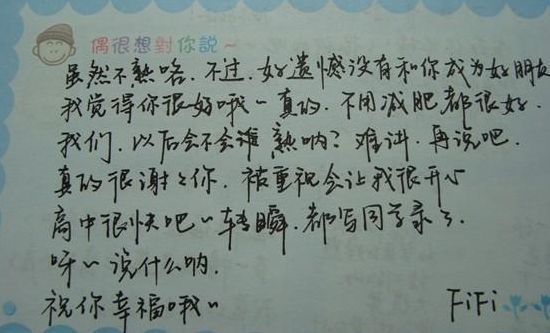 偶很想對你說~
虽然不熟咯.不过.好遗憾没有和你成为好朋友
我觉得你很好哦~真的.不用减肥都很好.
我们.以后会不会谁熟呐?难讲.再说吧.
真的很谢々你.被重视会让我很开心
高中很快吧~转瞬.都写同学录了.
呀~说什么呐.
祝你幸福哦~
FiFi